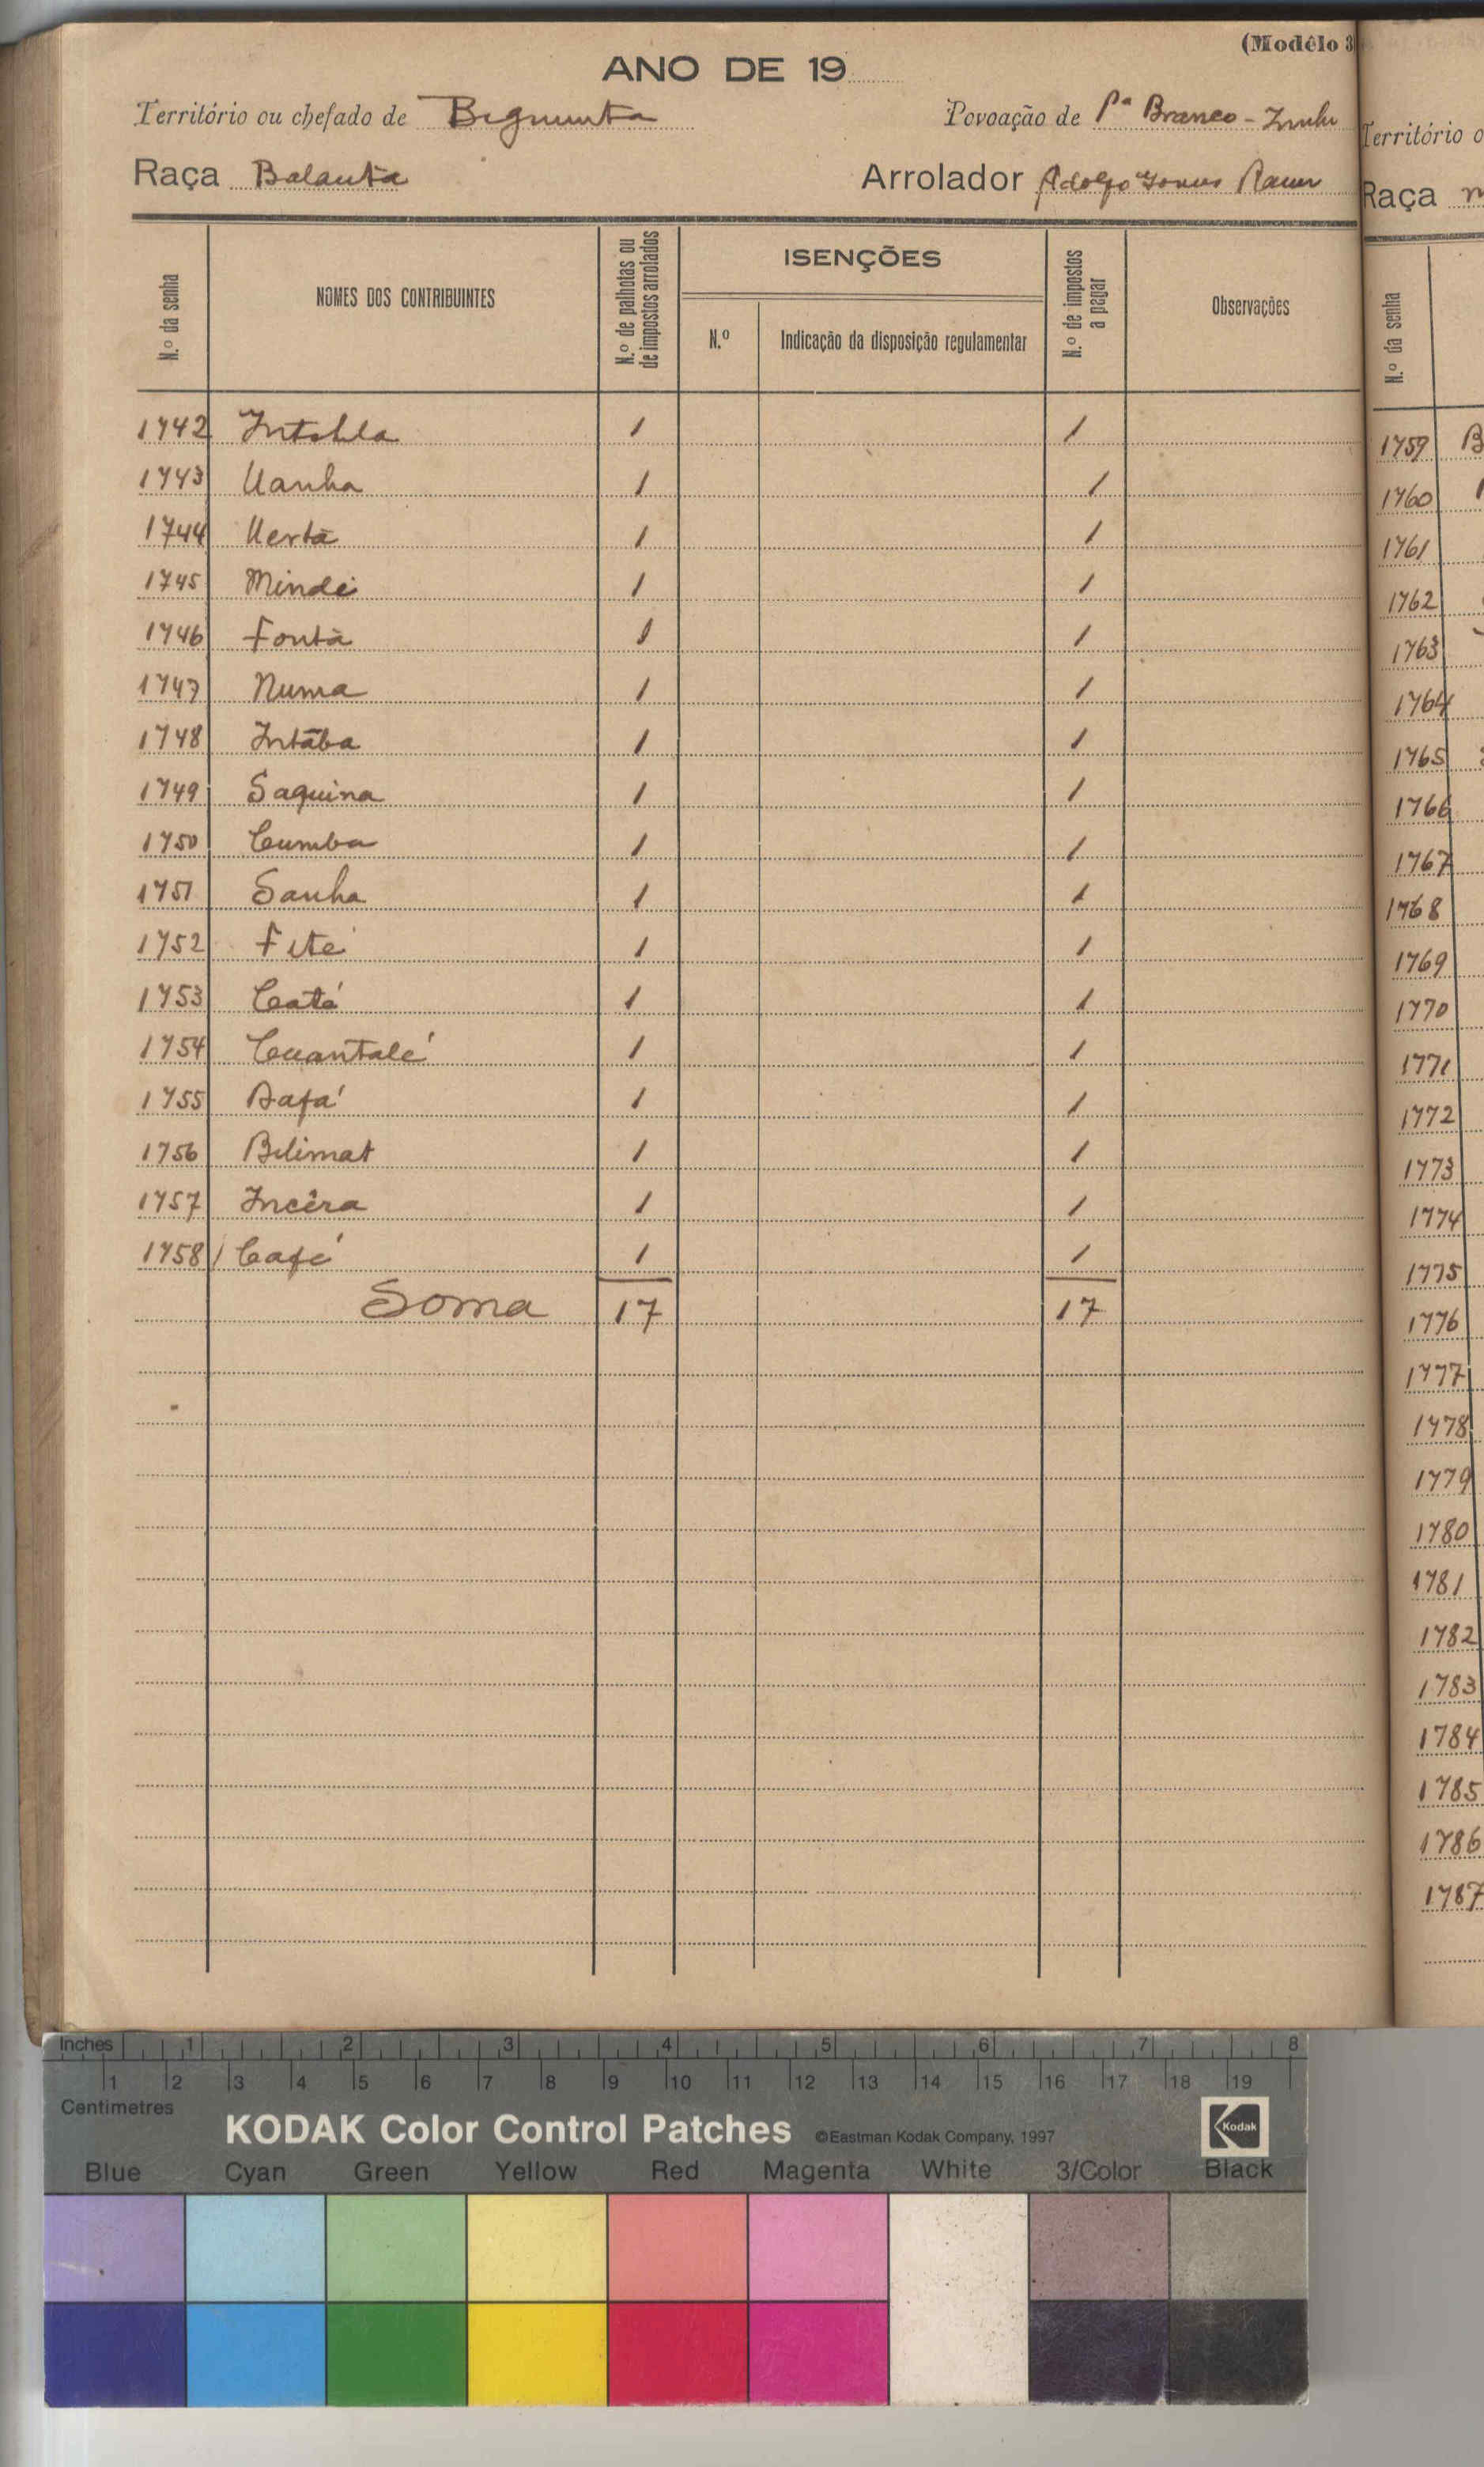 (Modêlo 3
ANO DE 19
Território ou chefado de Bigmunta Povoação de Pª Branco -
Raça Balanta Arrolador Adolfo Gomes
N.º da senha
NOMES DOS CONTRIBUINTES
N.º de palhotas ou de impostos arrolados
ISENÇÕES
N.º
Indicação da disposição regulamentar
N.º de impostos a pagar
Observações
1742 1 1
1743 Uanha 1 1
1744 Uertã 1 1
1745 Mindé 1 1
1746 Fontã 1 1
1747 Numa 1 1
1748 Intãba 1 1
1749 Saquina 1 1
1750 Cumba 1 1
1751 Sanha 1 1
1752 Fité 1 1
1753 Catá 1 1
1754 Cuantalé 1 1
1755 Dafá 1 1
1756 Bilimat 1 1
1757 Incêra 1 1
1758 Café 1 1
Soma 17 17
Território o
Raça
N.º da senha
1759 B
1760
1761
1762
1763
1764
1765
1766
1767
1768
1769
1770
1771
1772
1773
1774
1775
1776
1777
1778
1779
1780
1781
1782
1783
1784
1785
1786
1787
Inches 1 2 3 4 5 6 7 8
1 2 3 4 5 6 7 8 9 10 11 12 13 14 15 16 17 18 19
Centimetres
KODAK Color Control Patches ©Eastman Kodak Company, 1997 Kodak
Blue Cyan Green Yellow Red Magenta White 3/Color Black